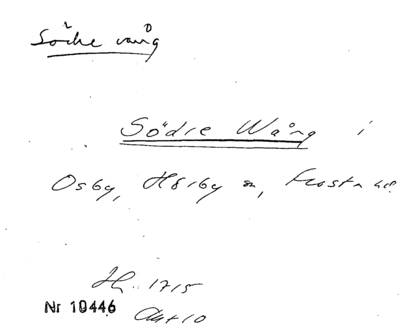 Södre vång
Södre Wång i
Osby, Hörby sn, Frosta hd
Hh. 1715
Nr 10446
Akt 10